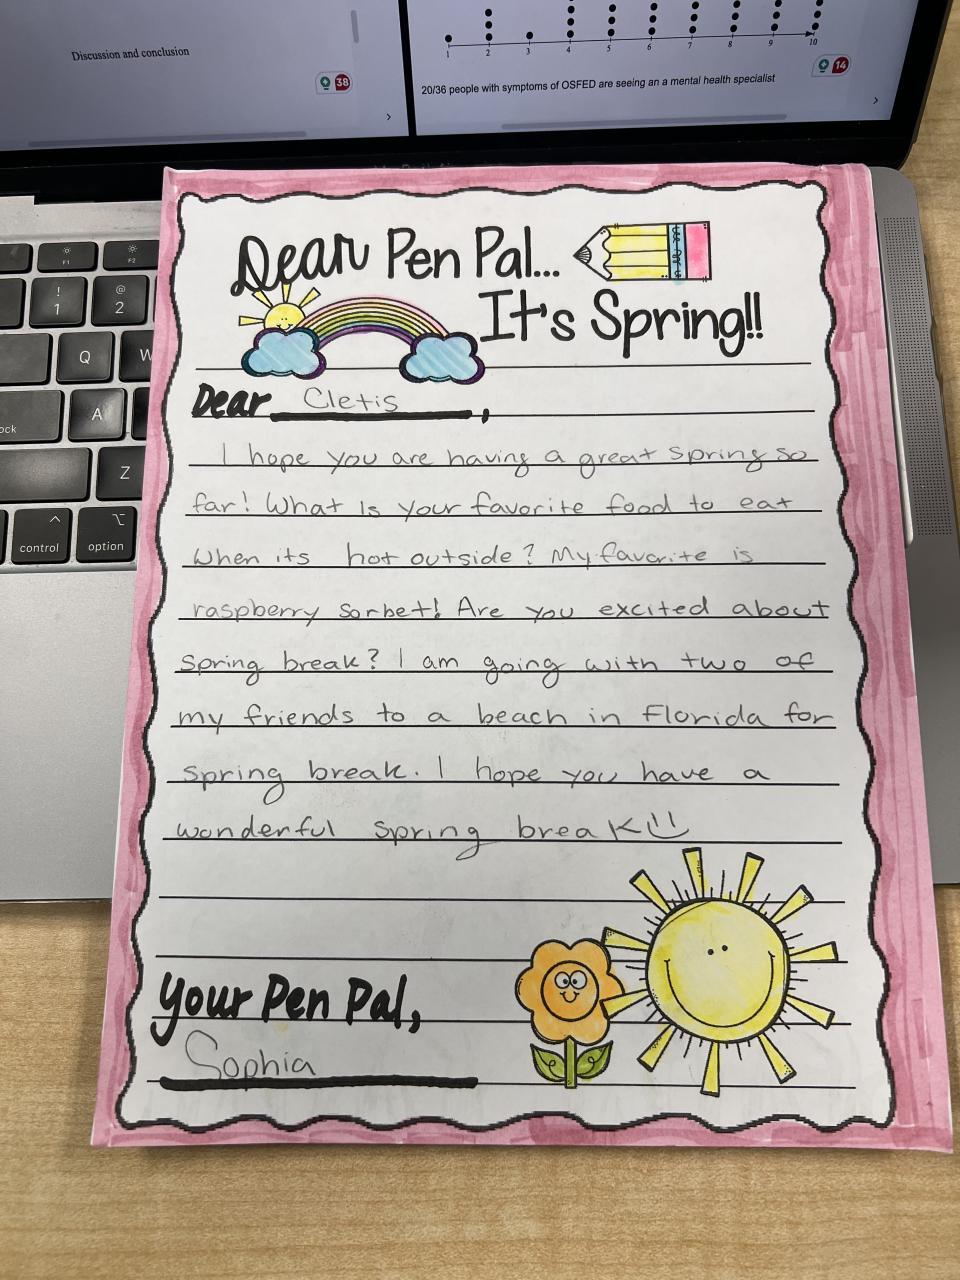 Discussion and conclusion
38
1 2 3 4 5 6 7 8 9 10
14
20/36 people with symptoms of OSFED are seeing an a mental health specialist
F1
F2
!
1
@
2
Q
W
A
Z
ock
^
control
⌥
option
Dear Pen Pal...
It's Spring!!
Dear Cletis,
I hope you are having a great spring so
far! What is your favorite food to eat
when its hot outside? My favorite is
raspberry sorbet! Are you excited about
spring break? I am going with two of
my friends to a beach in Florida for
spring break. I hope you have a
wonderful spring break
your Pen Pal,
Sophia